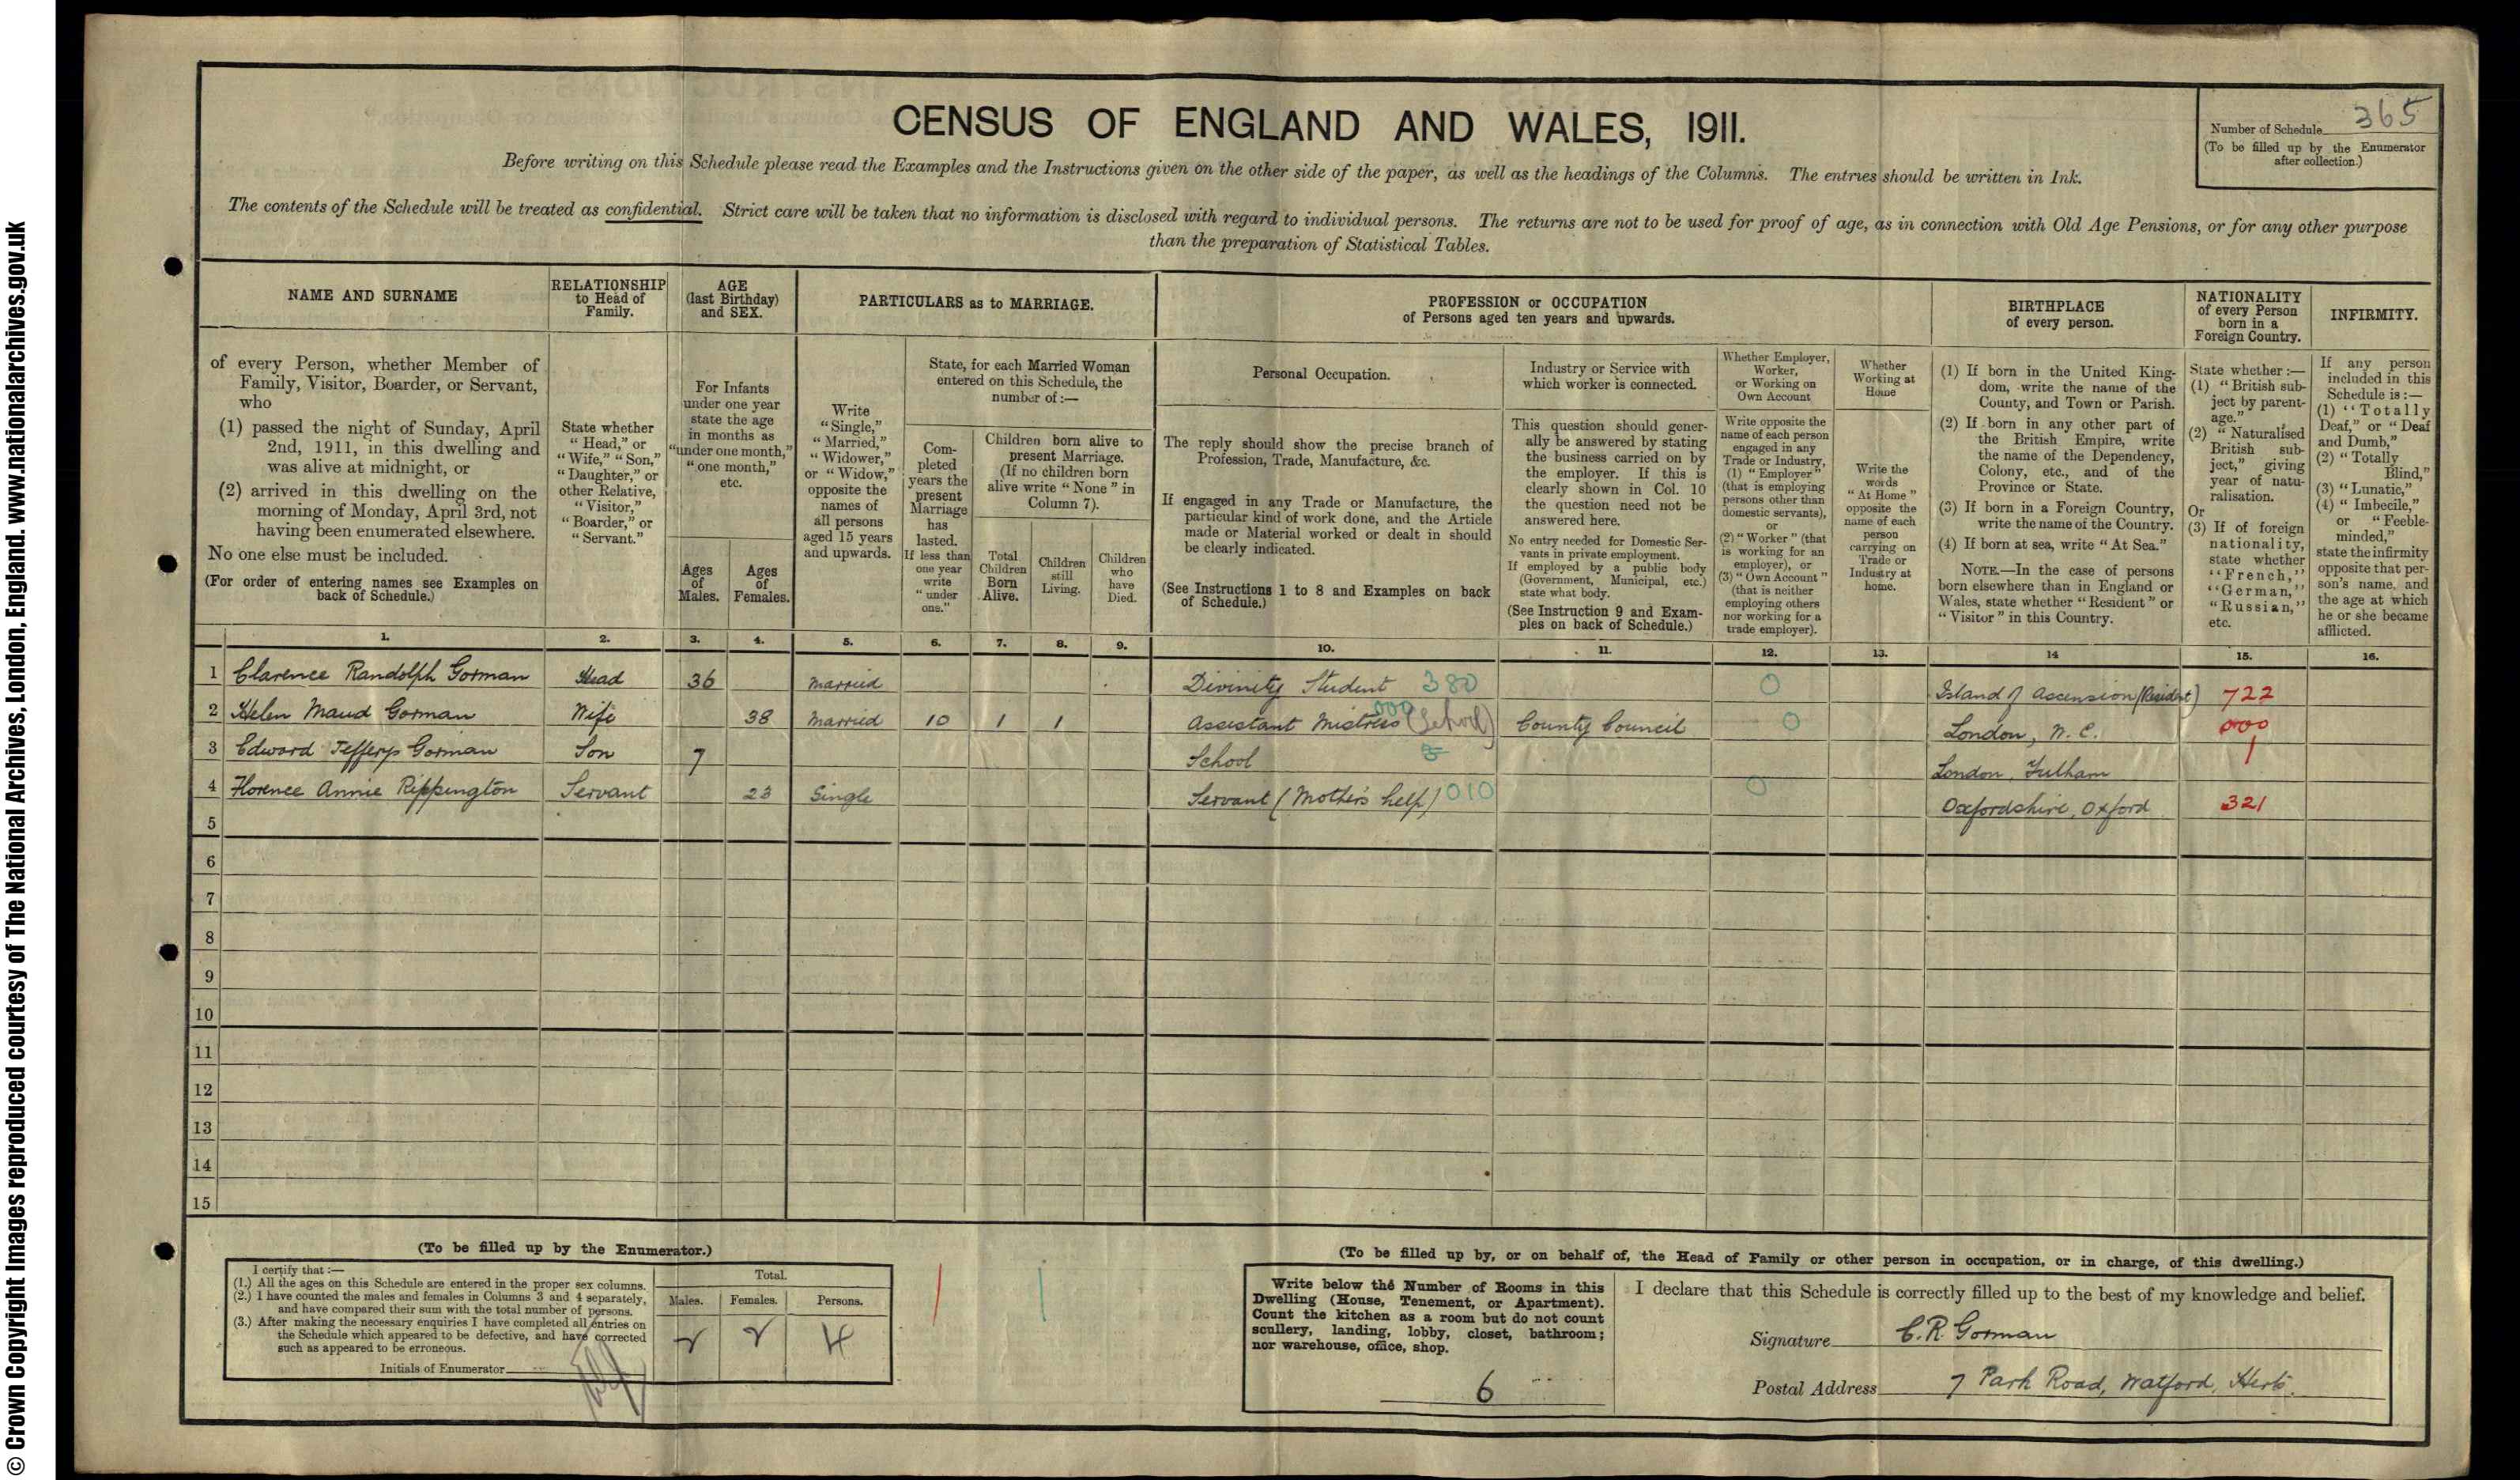 © Crown Copyright Images reproduced courtesy of The National Archives, London, England. www.nationalarchives.gov.uk
CENSUS OF ENGLAND AND WALES, 1911.
Number of Schedule 365
(To be filled up by the Enumerator
after collection.)
Before writing on this Schedule please read the Examples and the Instructions given on the other side of the paper, as well as the headings of the Columns. The entries should be written in Ink.
The contents of the Schedule will be treated as confidential. Strict care will be taken that no information is disclosed with regard to individual persons. The returns are not to be used for proof of age, as in connection with Old Age Pensions, or for any other purpose
than the preparation of Statistical Tables.
NAME AND SURNAME
of every Person, whether Member of
Family, Visitor, Boarder, or Servant,
who
(1) passed the night of Sunday, April
2nd, 1911, in this dwelling and
was alive at midnight, or
(2) arrived in this dwelling on the
morning of Monday, April 3rd, not
having been enumerated elsewhere.
No one else must be included.
(For order of entering names see Examples on
back of Schedule.)
RELATIONSHIP
to Head of
Family.
State whether
"Head," or
"Wife," "Son,"
"Daughter," or
other Relative,
"Visitor,"
"Boarder," or
"Servant."
AGE
(last Birthday)
and SEX.
For Infants
under one year
state the age
in months as
"under one month,"
"one month,"
etc.
Ages
of
Males.
Ages
of
Females.
PARTICULARS as to MARRIAGE.
Write
"Single,"
"Married,"
"Widower,"
or "Widow,"
opposite the
names of
all persons
aged 15 years
and upwards.
State, for each Married Woman
entered on this Schedule, the
number of :—
Com-
pleted
years the
present
Marriage
has
lasted.
If less than
one year
write
"under
one."
Children born alive to
present Marriage.
(If no children born
alive write "None" in
Column 7).
Total
Children
Born
Alive.
Children
still
Living.
Children
who
have
Died.
PROFESSION or OCCUPATION
of Persons aged ten years and upwards.
Personal Occupation.
The reply should show the precise branch of
Profession, Trade, Manufacture, &c.
If engaged in any Trade or Manufacture, the
particular kind of work done, and the Article
made or Material worked or dealt in should
be clearly indicated.
(See Instructions 1 to 8 and Examples on back
of Schedule.)
Industry or Service with
which worker is connected.
This question should gener-
ally be answered by stating
the business carried on by
the employer. If this is
clearly shown in Col. 10
the question need not be
answered here.
No entry needed for Domestic Ser-
vants in private employment.
If employed by a public body
(Government, Municipal, etc.)
state what body.
(See Instruction 9 and Exam-
ples on back of Schedule.)
Whether Employer,
Worker,
or Working on
Own Account
Write opposite the
name of each person
engaged in any
Trade or Industry,
(1) "Employer"
(that is employing
persons other than
domestic servants),
or
(2) "Worker" (that
is working for an
employer), or
(3) "Own Account"
(that is neither
employing others
nor working for a
trade employer).
Whether
Working at
Home
Write the
words
"At Home"
opposite the
name of each
person
carrying on
Trade or
Industry at
home.
BIRTHPLACE
of every person.
(1) If born in the United King-
dom, write the name of the
County, and Town or Parish.
(2) If born in any other part of
the British Empire, write
the name of the Dependency,
Colony, etc., and of the
Province or State.
(3) If born in a Foreign Country,
write the name of the Country.
(4) If born at sea, write "At Sea."
NOTE.—In the case of persons
born elsewhere than in England or
Wales, state whether "Resident" or
"Visitor" in this Country.
NATIONALITY
of every Person
born in a
Foreign Country.
State whether :—
(1) "British sub-
ject by parent-
age."
(2) "Naturalised
British sub-
ject," giving
year of natu-
ralisation.
Or
(3) If of foreign
nationality,
state whether
"French,"
"German,"
"Russian,"
etc.
INFIRMITY.
If any person
included in this
Schedule is :—
(1) "Totally
Deaf," or "Deaf
and Dumb,"
(2) "Totally
Blind,"
(3) "Lunatic,"
(4) "Imbecile,"
or "Feeble-
minded,"
state the infirmity
opposite that per-
son's name, and
the age at which
he or she became
afflicted.
1. 2. 3. 4. 5. 6. 7. 8. 9. 10. 11. 12. 13. 14 15. 16.
1 Clarence Randolph Gorman Head 36 Married Divinity Student 380 0 Island of Ascension (Resident) 722
2 Helen Maud Gorman Wife 38 Married 10 1 1 Assistant Mistress (School) 000 County Council 0 London, N.C. 000
3 Edward Jefferys Gorman Son 7 School London, Fulham 1
4 Florence Annie Rippington Servant 23 Single Servant (Mother's help) 010 0 Oxfordshire, Oxford 321
5
6
7
8
9
10
11
12
13
14
15
(To be filled up by the Enumerator.)
I certify that :—
(1.) All the ages on this Schedule are entered in the proper sex columns.
(2.) I have counted the males and females in Columns 3 and 4 separately,
and have compared their sum with the total number of persons.
(3.) After making the necessary enquiries I have completed all entries on
the Schedule which appeared to be defective, and have corrected
such as appeared to be erroneous.
Initials of Enumerator
Total.
Males. Females. Persons.
2 2 4
(To be filled up by, or on behalf of, the Head of Family or other person in occupation, or in charge, of this dwelling.)
Write below the Number of Rooms in this
Dwelling (House, Tenement, or Apartment).
Count the kitchen as a room but do not count
scullery, landing, lobby, closet, bathroom;
nor warehouse, office, shop.
6
I declare that this Schedule is correctly filled up to the best of my knowledge and belief.
Signature C.R. Gorman
Postal Address 7 Park Road, Watford, Herts.